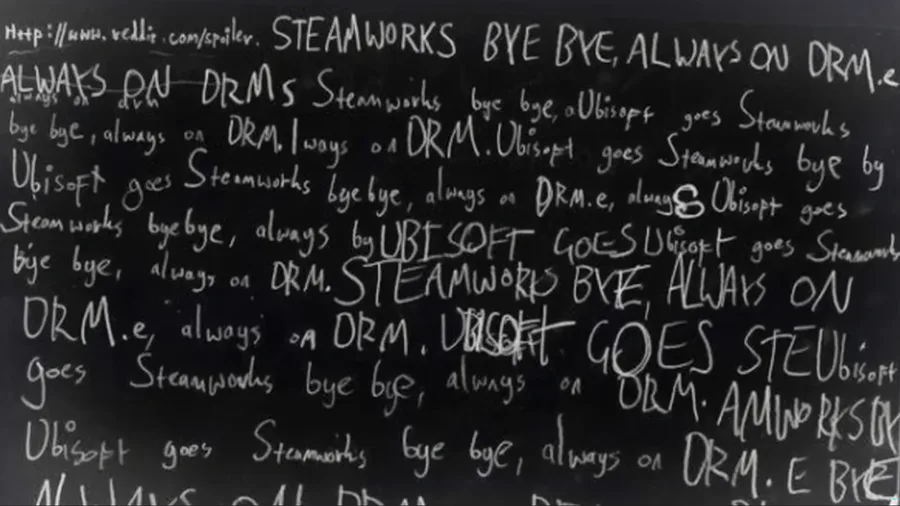 Http://www.reddit.com/spoiler. STEAMWORKS BYE BYE, ALWAYS ON DRM.e
ALWAYS ON DRMs Steamworks bye bye, a Ubisoft goes Steamworks
always on drm
bye bye, always on DRM. lways on DRM. Ubisoft goes Steamworks bye by
Ubisoft goes Steamworks bye bye, always on DRM.e, always Ubisoft goes
Steamworks bye bye, always by UBISOFT GOES Ubisoft goes Steamworks
bye bye, always on DRM. STEAMWORKS BYE, ALWAYS ON
DRM.e, always on DRM. UBISOFT GOES STEUbisoft
goes Steamworks bye bye, always on DRM. AMWORKS BY
Ubisoft goes Steamworks bye bye, always on DRM. E BYE
ALWAYS ON DRM